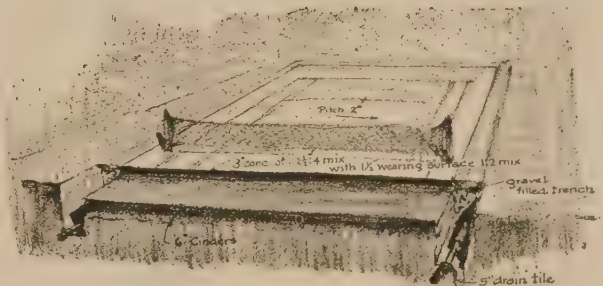 Pitch 2"
3" conc of 1-2½-4 mix
with 1½ wearing surface 1:2 mix
gravel
filled trench
6" Cinders
5" drain tile